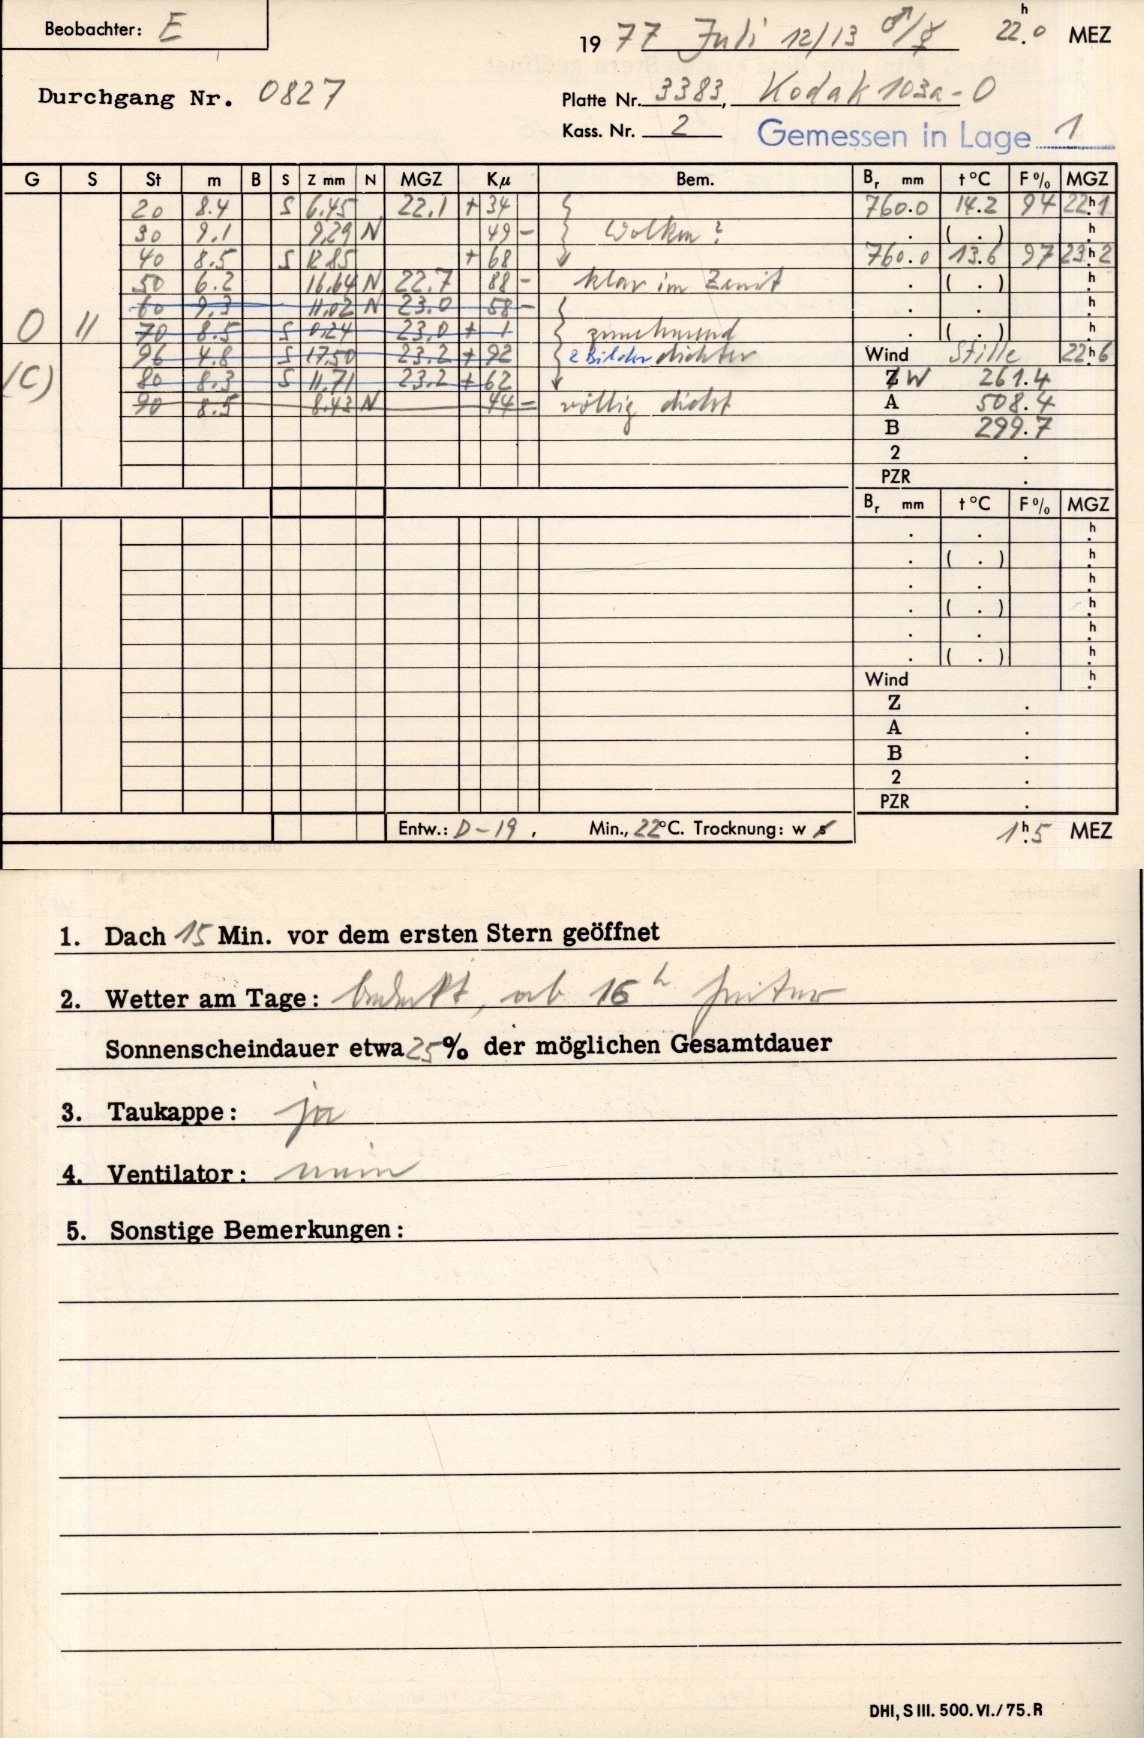 Beobachter: E
19 77 Juli 12/13 ♂/☿ 22.0 h MEZ
Durchgang Nr. 0827
Platte Nr. 3383, Kodak 103a-O
Kass. Nr. 2 Gemessen in Lage 1
G S St m B S Z mm N MGZ Kμ Bem. Br mm t °C F% MGZ
20 8.4 S 6.45 22.1 + 34 760.0 14.2 94 22h1
30 9.1 9.29 N 49 - Wolken? . ( . ) h
40 8.5 S 12.85 + 68 760.0 13.6 97 23h2
50 6.2 16.64 N 22.7 88 - klar im Zenit . ( . ) h
60 9.3 11.02 N 23.0 58 - . . h
O II 70 8.5 S 0.24 23.0 + 1 zunehmend . ( . ) h
96 4.8 S 17.50 23.2 + 92 2 Bilder dichter Wind Stille 22h6
(C) 80 8.3 S 11.71 23.2 + 62 Z W 261.4
90 8.5 8.43 N 44 - völlig dicht A 508.4
B 299.7
2 .
PZR .
Br mm t °C F% MGZ
. . h
. ( . ) h
. . h
. ( . ) h
. . h
. ( . ) h
Wind h
Z .
A .
B .
2 .
PZR .
Entw.: D-19, Min., 22°C. Trocknung: w s 1h.5 MEZ
1. Dach 15 Min. vor dem ersten Stern geöffnet
2. Wetter am Tage: bedeckt, ab 16 h heiter
Sonnenscheindauer etwa 25% der möglichen Gesamtdauer
3. Taukappe: ja
4. Ventilator: nein
5. Sonstige Bemerkungen:
DHI, S III. 500. VI./75. R